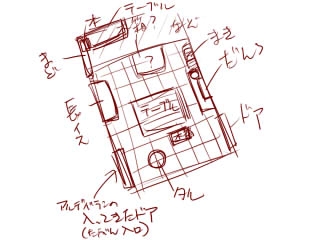 テーブル
本
まど
まき
だんろ
?
長イス
テーブル
ドア
タル
アルデバランの
入ってきたドア
(たぶん入口)